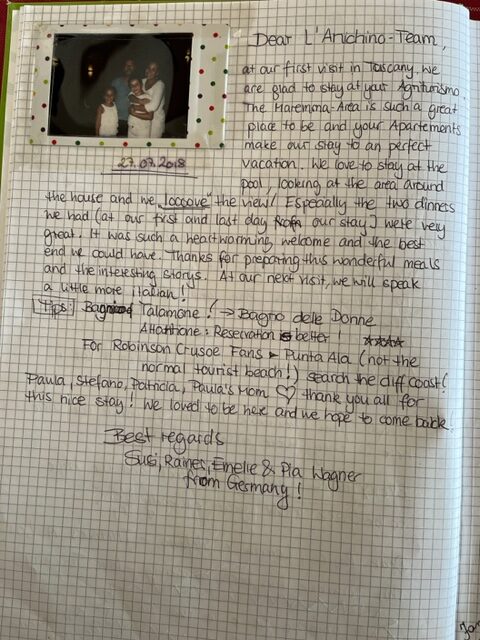 Dear L'Anichino-Team,
at our first visit in Toscany, we
are glad to stay at your Agriturismo.
The Maremma-Area is such a great
place to be and your Apartements
make our stay to an perfect
vacation. We love to stay at the
pool, looking at the area around
27.07.2018
the house and we "looove" the view! Especially the two dinners
we had (at our first and last day our stay) were very
great. It was such a heartwarming welcome and the best
end we could have. Thanks for preparing this wonderful meals
and the interesting storys. At our next visit, we will speak
a little more italian!
Tips: Talamone! → Bagno delle Donne
Attanthone: Reservation is better! ☆☆☆☆
For Robinson Crusoe Fans ▸ Punta Ala (not the
normal tourist beach!) search the cliff coast!
Paula, Stefano, Patricia, Paula's Mom ♡ thank you all for
this nice stay! We loved to be here and we hope to come back!
Best regards
Susi, Rainer, Emelie & Pia Wagner
from Germany!